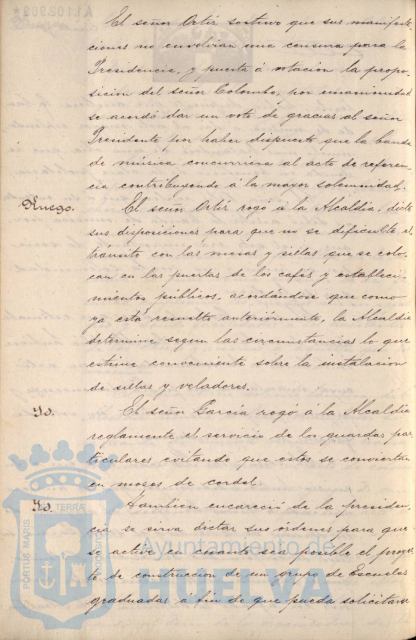 A1102902*
El señor Ortiz sostuvo que sus manifesta-
ciones no envolvian una censura para la
Presidencia, y puesta á votación la propo-
sición del señor Colombo, por unanimidad
se acordó dar un voto de gracias al señor
Presidente por haber dispuesto que la banda
de música concurriera al acto de referen-
cia contribuyendo á la mayor solemnidad.
Ruego. El señor Ortiz rogó á la Alcaldía, dicte
sus disposiciones para que no se dificulte el
tránsito con las mesas y sillas que se colo-
can en las puertas de los cafés y estableci-
mientos públicos, acordándose que como
ya está resuelto anteriormente, la Alcaldía
determine segun las circunstancias lo que
estime conveniente sobre la instalacion
de sillas y veladores.
Yd. El señor García rogó á la Alcaldía
reglamente el servicio de los guardas par-
ticulares evitando que estos se conviertan
en mozos de cordel.
Yd. Tambien encareció de la presiden-
cia se sirva dictar sus órdenes para que
se active en cuanto sea posible el proyec-
to de construccion de un grupo de Escuelas
graduadas á fin de que pueda solicitarse
PORTUS MARIS
TERRAE
Ayuntamiento de
HUELVA